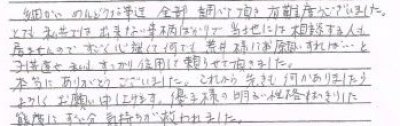 細かい めんどうな事迄 全部 調べて頂き 有難度うございました。
とても 私共では 出来ない事柄ばかりで 当地には 相談する人も
居ませんので すごく心強くて 何でも 荒井様にお願いすれば…と
子供達も 私も すっかり信用して 頼らせて頂きました。
本当に ありがとうございました。これから先きも 何かありましたら
よろしくお願い申し上げます。優子様の明るい性格 はっきりした
態度に ずい分 気持ちが 救われました。